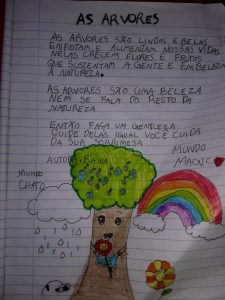 AS ARVORES
AS ARVORES SÃO LINDAS E BELAS
ENFEITAM E ALIMENTAM NOSSAS VIDAS
NELAS CRECEM FLORES E FRUTOS
QUE SUSTENTAM A GENTE E EMBELEZA
A NATUREZA.
AS ARVORES SÃO UMA BELEZA
NEM SE FALA DO RESTO DA
NATUREZA
ENTÃO FAÇA UM GENTILEZA
CUIDE DELAS IGUAL VOCÊ CUIDA
DA SUA SOBRIMESA
MUNDO
MAGICO
MUNDO
CHATO